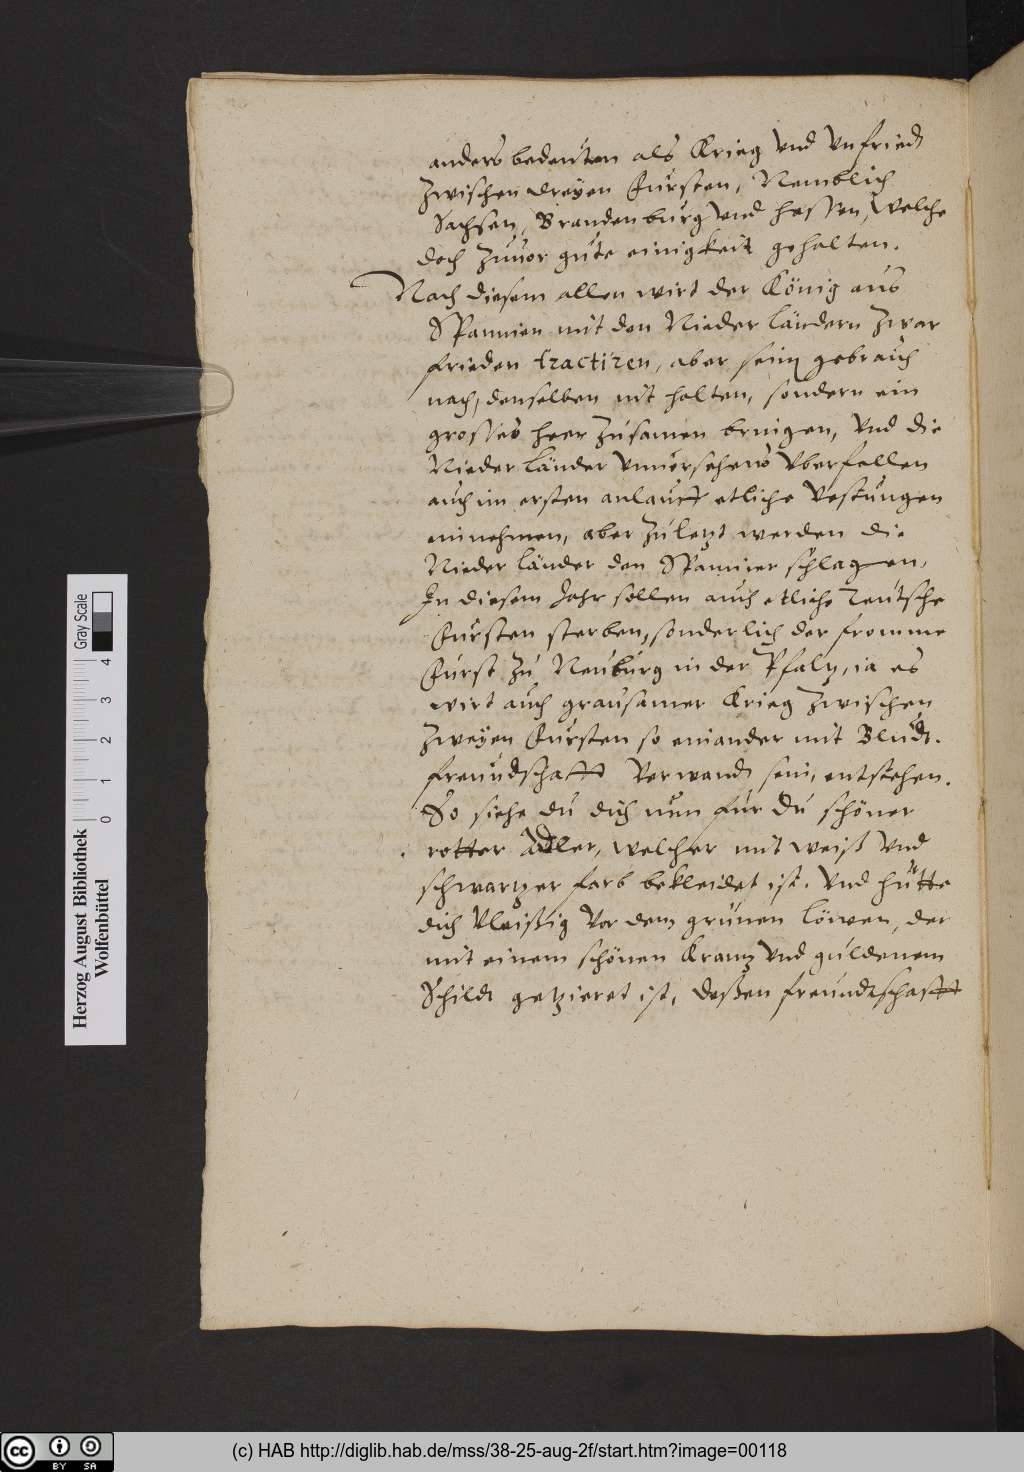 anders bedeuten als Krieg vnd Vnfriedt
zwischen dreyen Fürsten, Nemblich
Sachsen, Brandenburg vnd Hessen, Welche
doch zuuor gute einigkeit gehalten.
Nach diesem allen wirt der König aus
Spannien mit den Niederländern zwar
frieden tractiren, aber seim gebrauch
nach, denselben nit halten, sondern ein
grosses heer zusamen bringen, vnd die
Niederländer vnuersehens vberfallen
auch im ersten anlauff etliche Vestungen
einnehmen, aber zuletzt werden die
Niederländer den Spannier schlagen,
In diesem Jahr sollen auch etliche Teutsche
Fürsten sterben, sonderlich der fromme
Fürst zu Neuburg in der Pfaltz, ia es
wirt auch grausamer Krieg zwischen
zweyen Fürsten so einander mit Bludt-
freundschafft Verwandt sein, entstehen.
So siehe du dich nun für du schöner
rotter Adler, welcher mit weiß vnd
schwartzer farb bekleidet ist. vnd hütte
dich Vleißig Vor dem grünen löwen, der
mit einem schönen Krantz vnd güldenem
Schildt getzieret ist, deßen freundtschafft
Herzog August Bibliothek
Wolfenbüttel
0 1 2 3 4
Gray Scale
cc BY SA
(c) HAB http://diglib.hab.de/mss/38-25-aug-2f/start.htm?image=00118